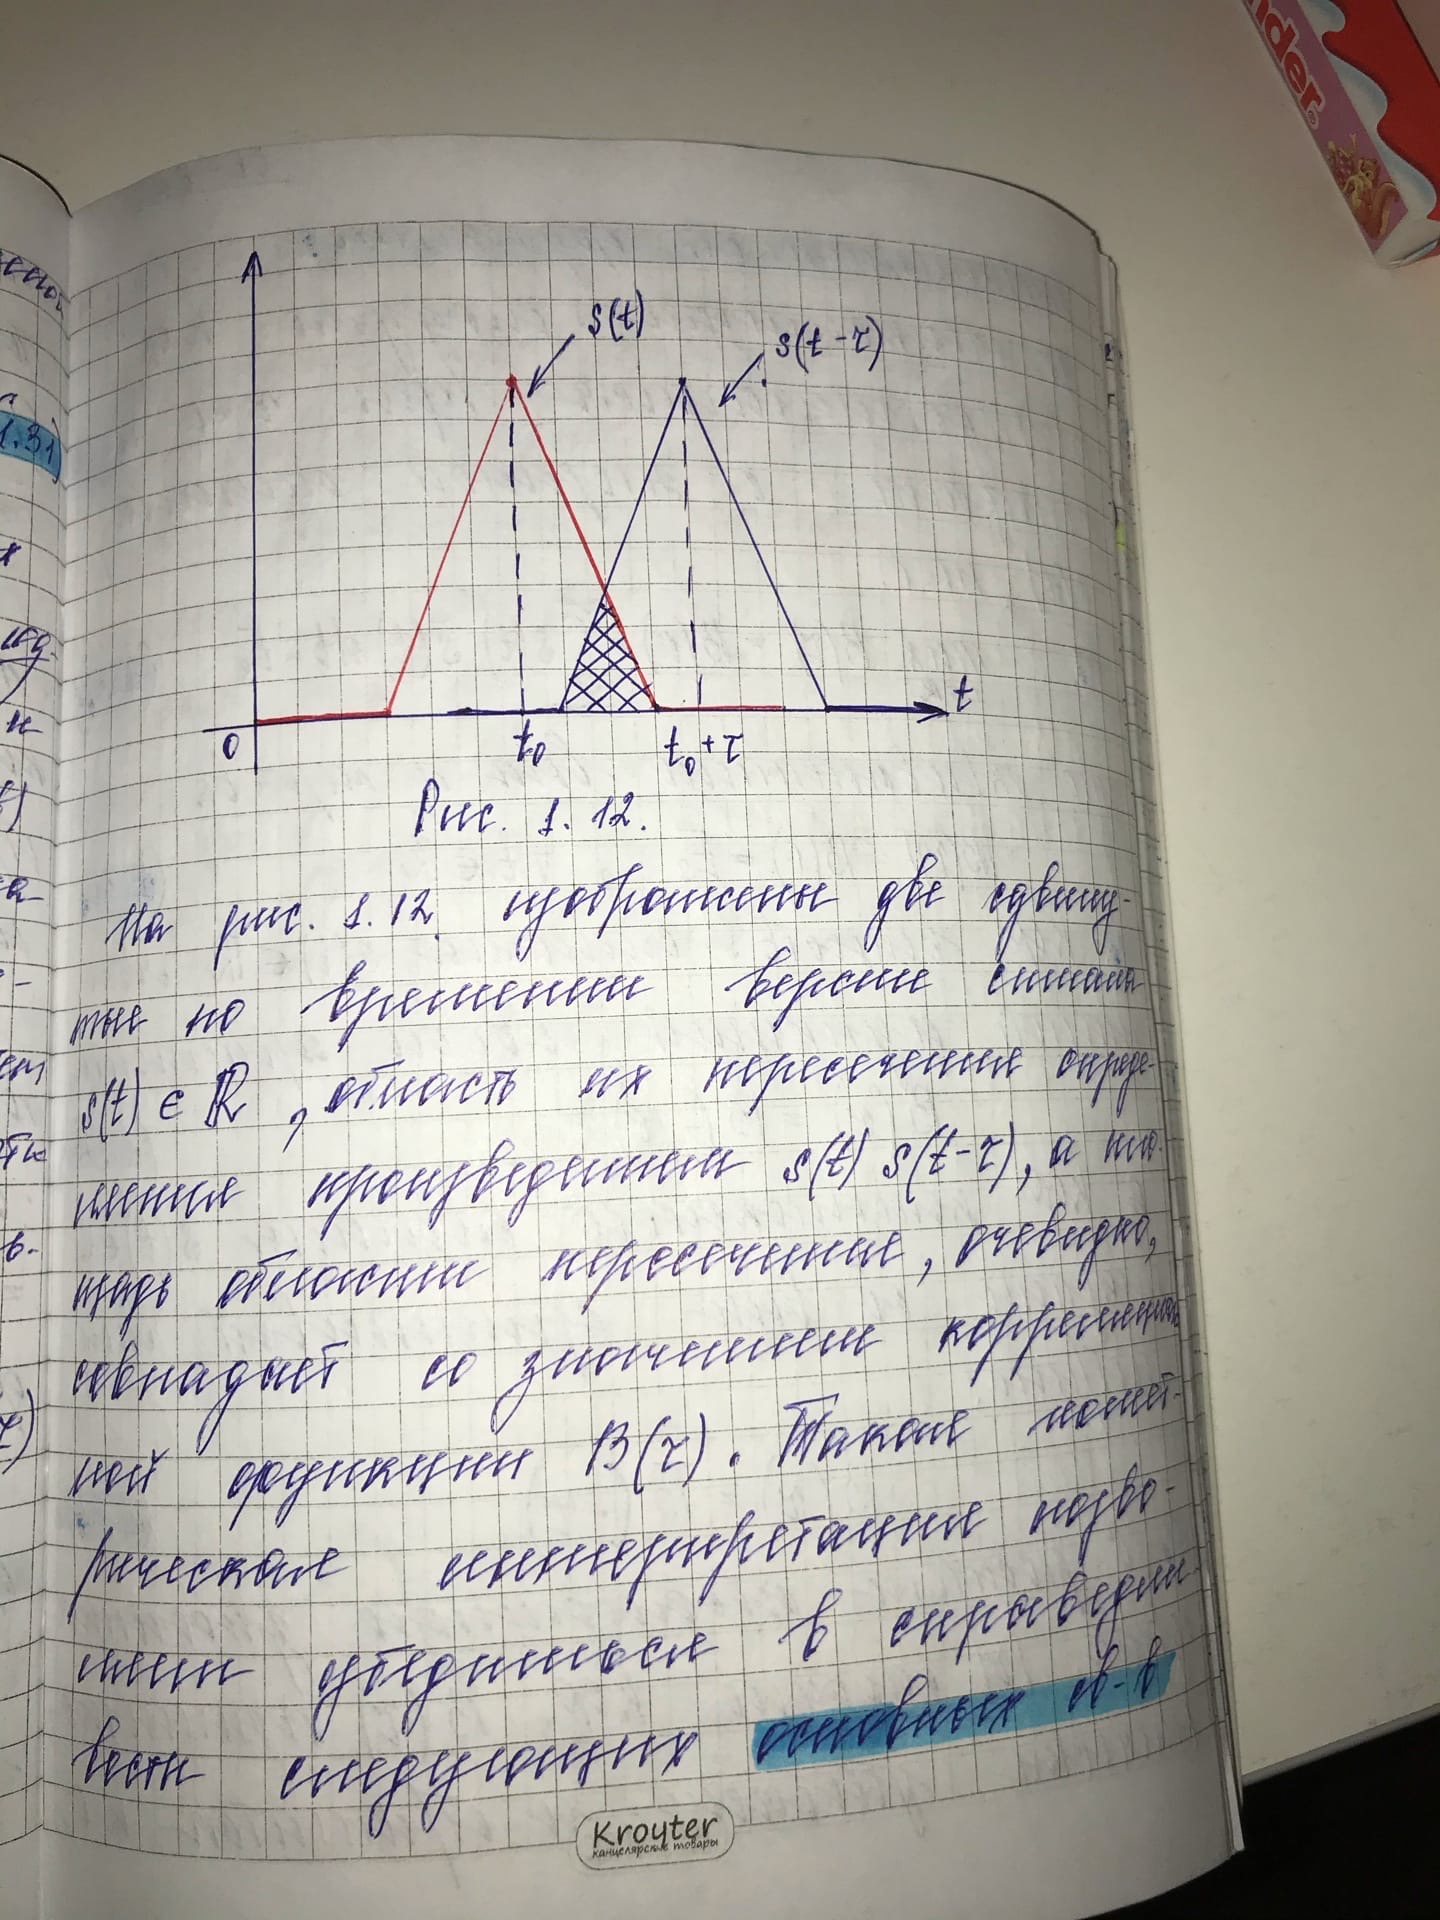 nder
s(t)
s(t-τ)
1.31
t
0
t₀
t₀+τ
Рис. 1.12.
На рис. 1.12. изображены две сдвину-
тые по времени версии сигнала
s(t) ∈ ℝ, область их пересечения опреде-
ляется произведением s(t) s(t-τ), а пло-
щадь области пересечения, очевидно,
совпадает со значением корреляцион-
ной функции B(τ). Такая геомет-
рическая интерпретация позво-
ляет убедиться в справедли-
вости следующих основных св-в
Krouter
канцелярские товары